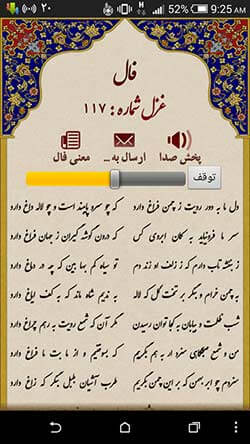 ۲۰ 52% 9:25 AM
فال
غزل شماره : ۱۱۷
پخش صدا ارسال به ... معنی فال
توقف
دل ما به دور رویت ز چمن فراغ دارد که چو سرو پایبند است و چو لاله داغ دارد
سر ما فرونیاید به کمان ابروی کس که درون گوشه گیران ز جهان فراغ دارد
ز بنفشه تاب دارم که ز زلف او زند دم تو سیاه کم بها بین که چه در دماغ دارد
به چمن خرام و بنگر بر تخت گل که لاله به ندیم شاه ماند که به کف ایاغ دارد
شب ظلمت و بیابان به کجا توان رسیدن مگر آن که شمع رویت به رهم چراغ دارد
من و شمع صبحگاهی سزد ار به هم بگرییم که بسوختیم و از ما بت ما فراغ دارد
سزدم چو ابر بهمن که بر این چمن بگریم طرب آشیان بلبل بنگر که زاغ دارد